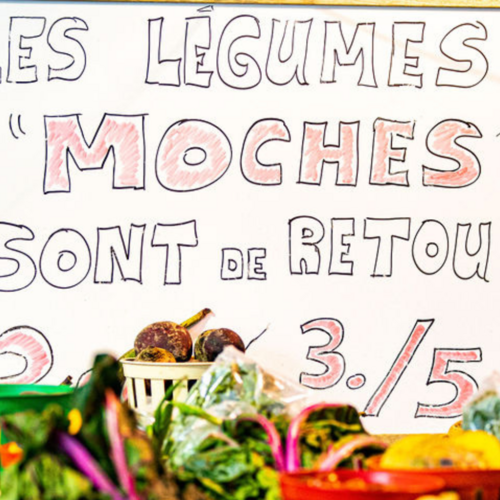 LES LÉGUMES
"MOCHES"
SONT DE RETOU
2. 3./5